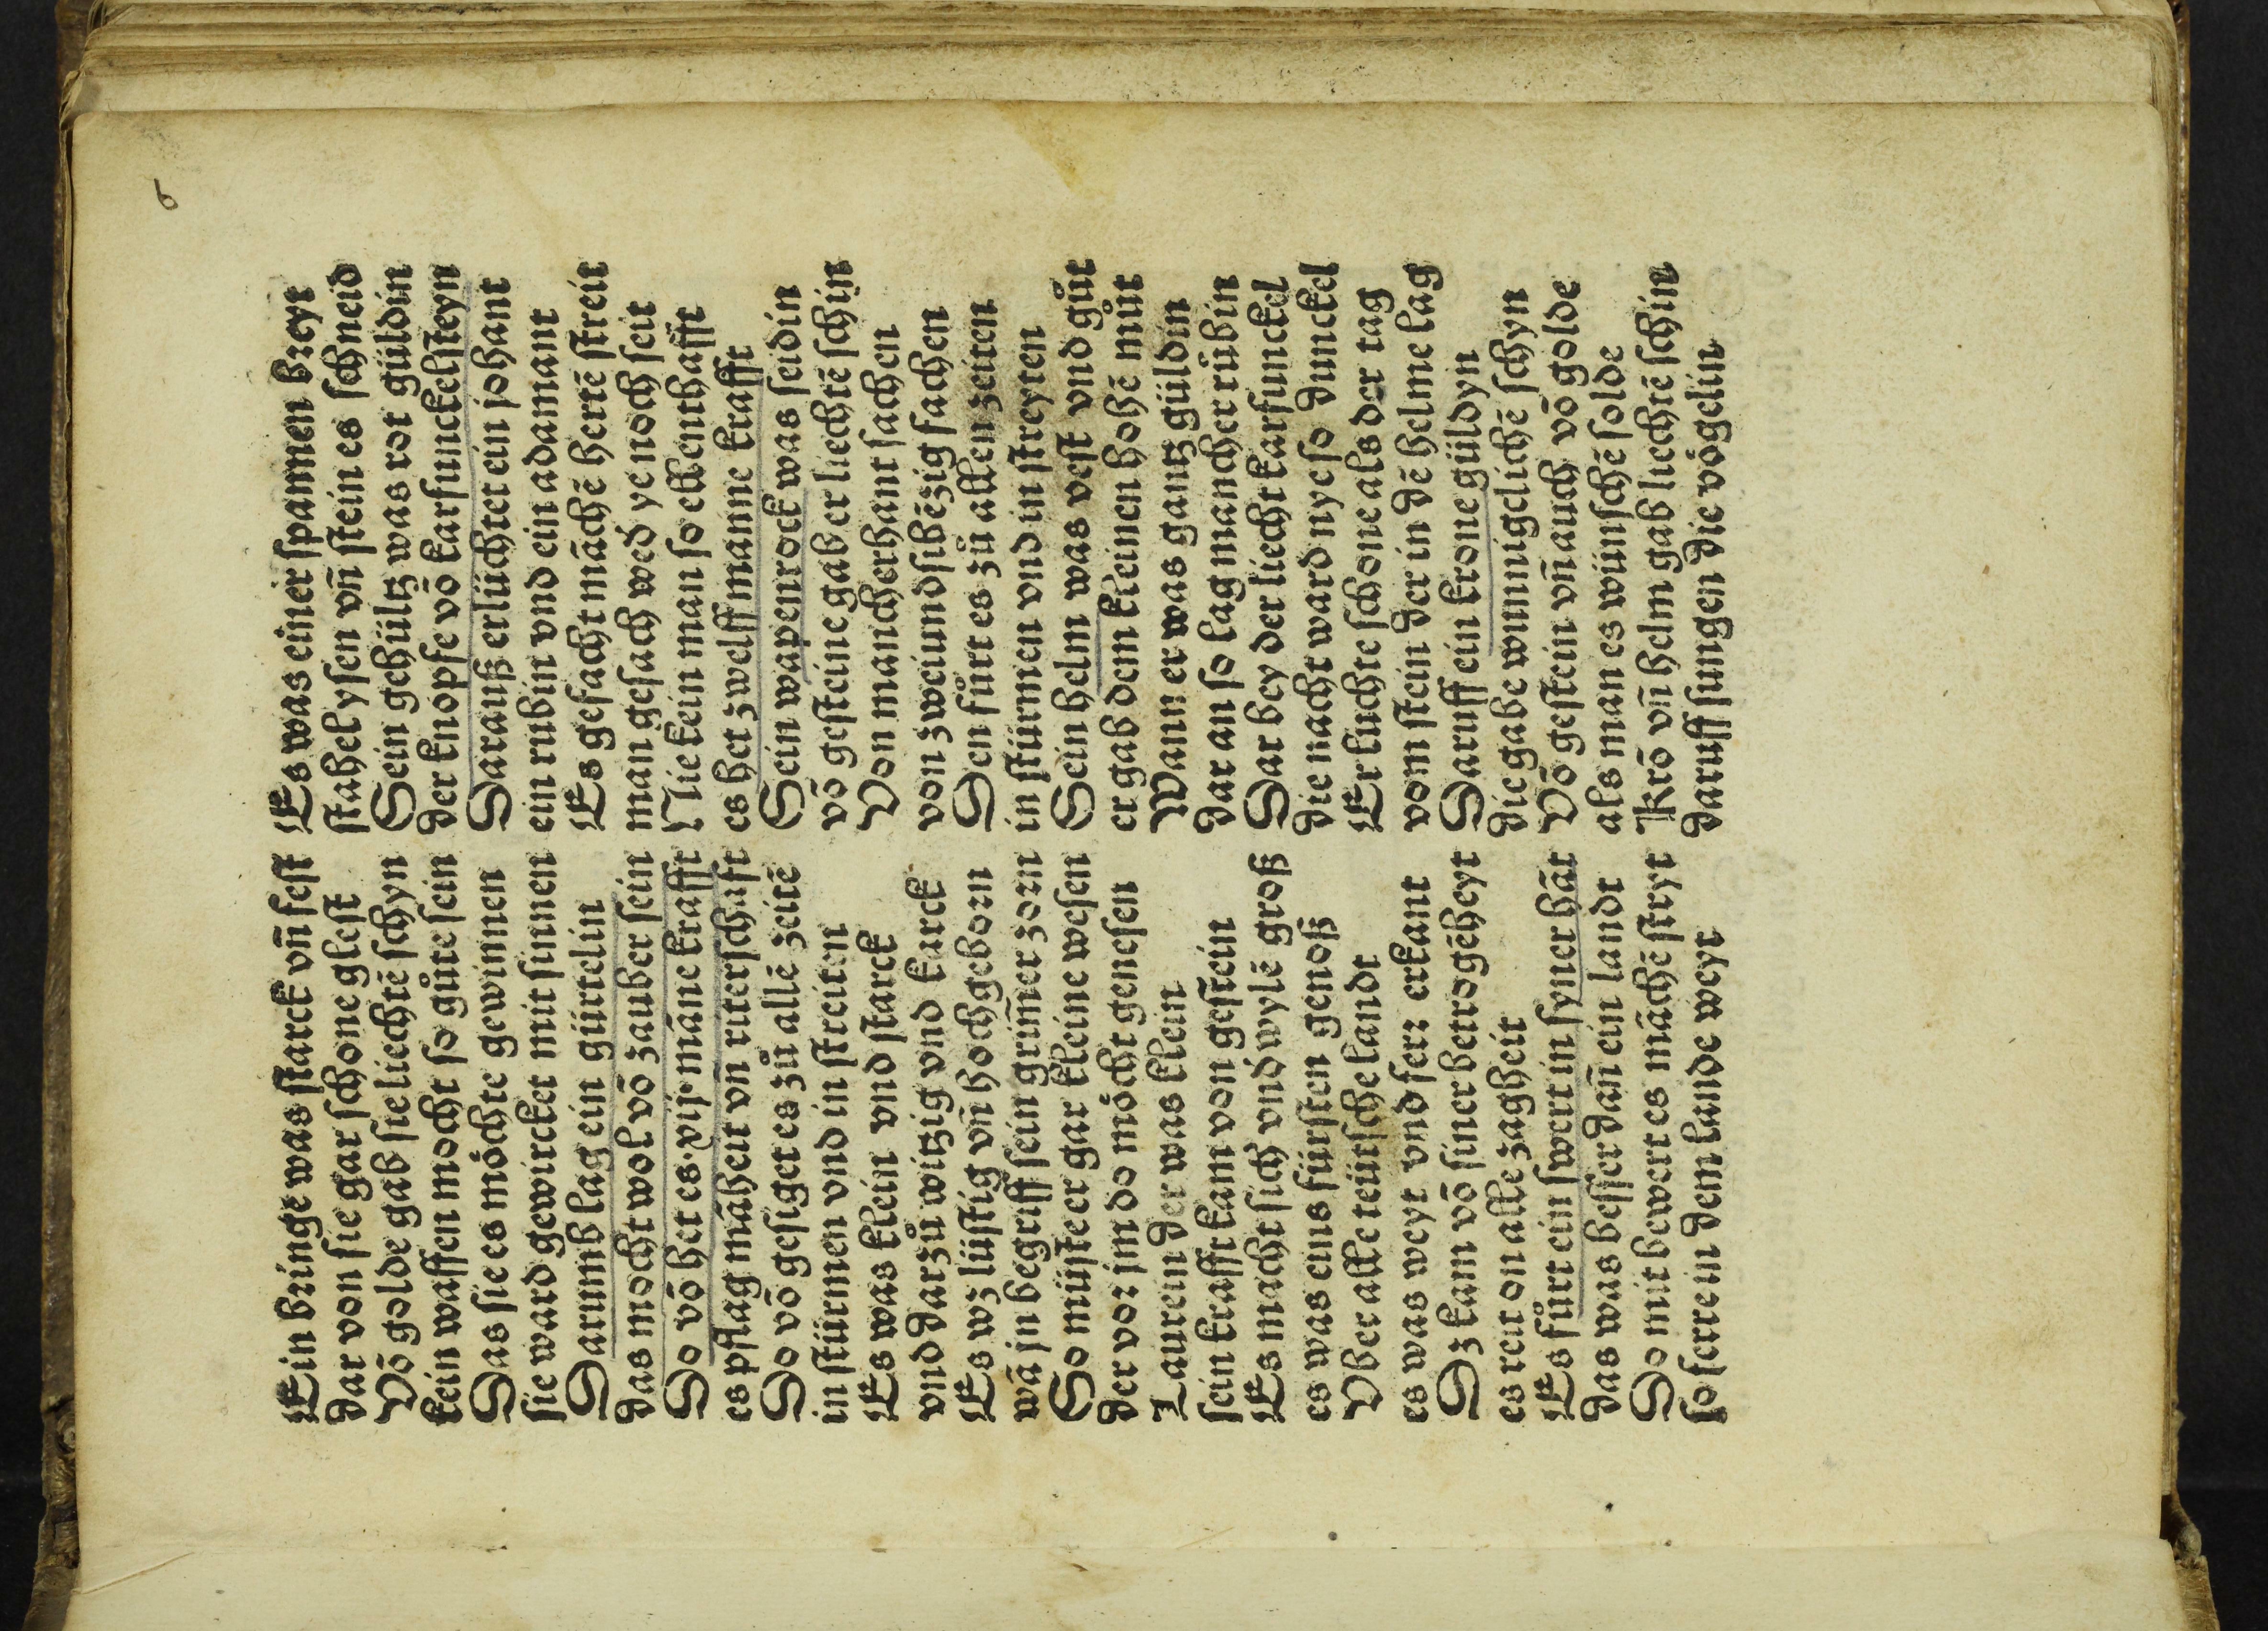 6
Ein bringe was starck vn̄ fest
dar von sie gar schone glest
Vō golde gab sie liechtē schyn
kein waffen mocht so gůte sein
Das sie es möchte gewinnen
sie ward gewircket mit sinnen
Darumb lag ein gürtelin
das mocht wol vō zauber sein
Do vō het es .xij. māne krafft
es pflag māheit vn̄ ritterschafft
Do vō gesiget es zů allē zeitē
in stürmen vnd in streiten
Es was klein vnd starck
vnd darzů witzig vnd karck
Es wz lüstig vn̄ hochgeborn
wā jn begriff sein grim̄er zorn
So müste er gar kleine wesen
der vor jm do möcht genesen
Laurein der was klein
sein krafft kam von gestein
Es macht sich vnd wylē groß
es was eins fürsten genoß
Vber alle teütsche landt
es was weyt vnd ferr erkant
Dz kam vō siner betrogēheyt
es reit on alle zagheit
Es fůrt ein swert in syner hāt
das was besser dan̄ ein landt
Do mit bewert es māchē streyt
so ferre in dem lande weyt
Es was einer spannen breyt
stahel ysen vn̄ stein es schneid
Sein gehültz was rot güldin
der knopfe vō karfunckelsteyn
Darauß erlüchtet ein johant
ein rubin vnd ein adamant
Es gefacht māchē hertē streit
man gesach wed ye noch seit
Nie kein man so ellenthafft
es het zwelff manne krafft
Sein wapenrock was seidin
vō gesteine gab er liechtē schin
Von mancherhant sachen
von zweiundsibēzig fachen
Den fůrt es zů allen zeiten
in stürmen vnd in streyten
Sein helm was vest vnd gůt
er gab dem kleinen hohē můt
Wann er was gantz güldin
dar an so lag mancher rubin
Dar bey der liecht karfunckel
die nacht ward nye so dunckel
Er luchte schone als der tag
vom stein der in dē helme lag
Daruff ein krone güldyn
die gabe wunniglichē schyn
Vō gestein vn̄ auch vō golde
als man es wünschē solde
Krō vn̄ helm gab liechtē schin
daruff sungen die vögelin